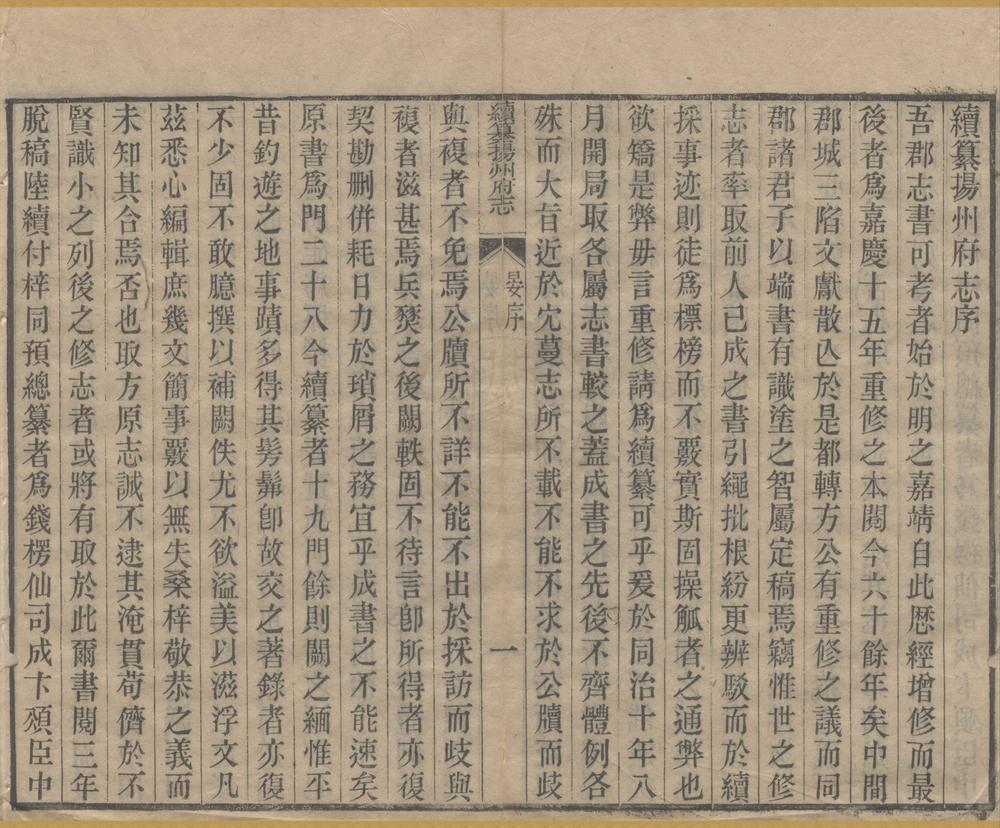 續纂揚州府志序
吾郡志書可考者始於明之嘉靖自此歴經增修而最
後者爲嘉慶十五年重修之本閱今六十餘年矣中間
郡城三陷文獻散亾於是都轉方公有重修之議而同
郡諸君子以端書有識塗之智屬定稿焉竊惟世之修
志者率取前人已成之書引繩批根紛更辨駁而於續
採事迹則徒爲標榜而不覈實斯固操觚者之通弊也
欲矯是弊毋言重修請爲續纂可乎爰於同治十年八
月開局取各屬志書較之蓋成書之先後不齊體例各
殊而大旨近於宂蔓志所不載不能不求於公牘而歧
與複者不免焉公牘所不詳不能不出於採訪而歧與
複者滋甚焉兵燹之後闕軼固不待言卽所得者亦復
契勘刪併耗日力於瑣屑之務宜乎成書之不能速矣
原書爲門二十八今續纂者十九門餘則闕之緬惟平
昔釣遊之地事蹟多得其髣髴卽故交之著錄者亦復
不少固不敢臆撰以補闕佚尤不欲溢美以滋浮文凡
茲悉心編輯庶幾文簡事覈以無失桑梓敬恭之義而
未知其合焉否也取方原志誠不逮其淹貫苟儕於不
賢識小之列後之修志者或將有取於此爾書閱三年
脫稿陸續付梓同預總纂者爲錢楞仙司成卞頌臣中
續纂揚州府志
晏序
一